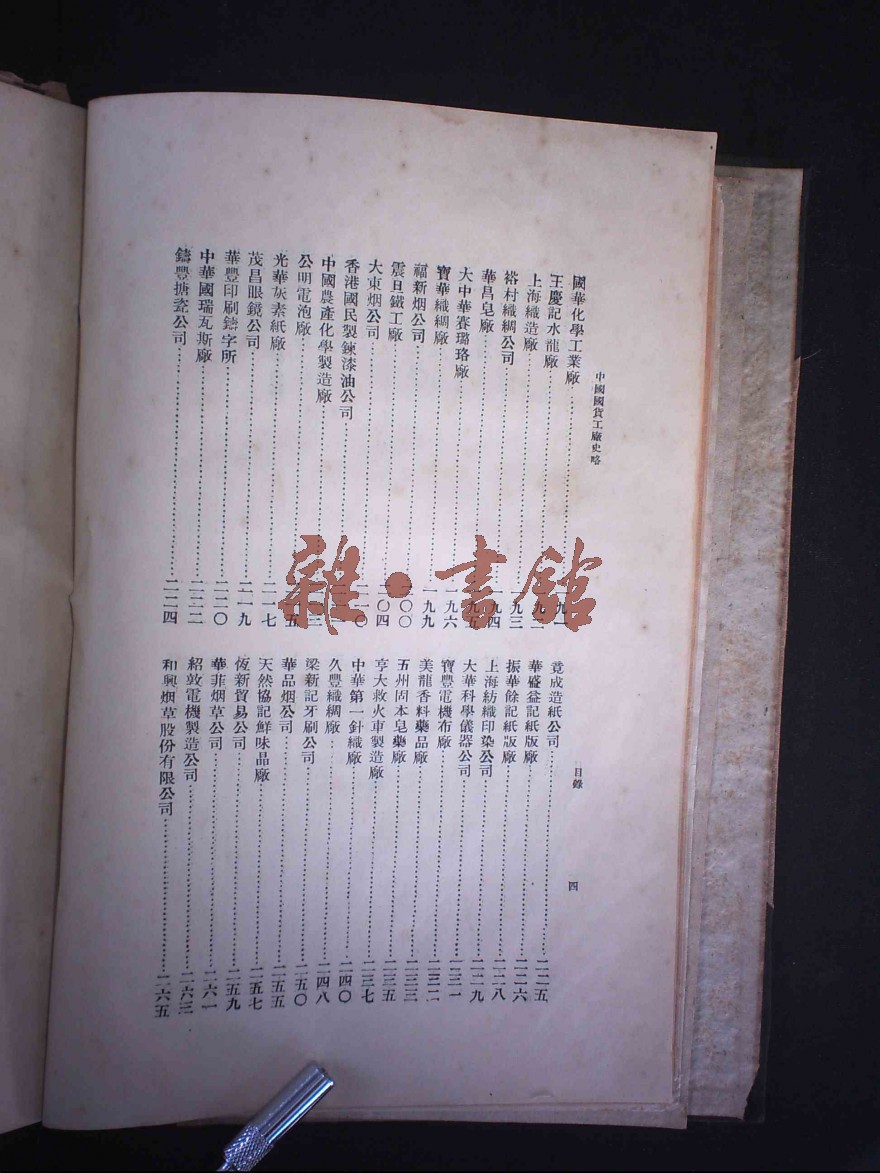 中國國貨工廠史略
目錄
四
國華化學工業廠
王慶記水龍廠
上海織造廠
裕村織綢公司
華昌皂廠
大中華賽璐珞廠 一九六
寶華織綢廠 一九九
福新烟公司
震旦鐵工廠
大東烟公司
香港國民製鍊漆油公司
中國農產化學製造廠
公明電泡廠
光華灰素紙廠 二一七
茂昌眼鏡公司 二一九
華豐印刷鑄字所 二二〇
中華國瑞瓦斯廠 二二二
鑄豐搪瓷公司 二二四
竟成造紙公司 二二五
華盛益記紙版廠 二二六
振華餘記紙版廠 二二八
上海紡織印染公司 二二九
大華科學儀器公司 二三一
寶豐電機布廠 二三二
美龍香料藥品廠 二三三
五州固本皂藥廠 二三五
亨大救火車製造廠 二三七
中華第一針織廠 二四〇
久豐織綢廠 二四八
梁新記牙刷公司 二五〇
華品烟公司 二五五
天然協記鮮味品廠 二五七
恆新貿易公司 二五九
華菲烟草公司 二六一
紹敦電機製造公司 二六三
和興烟草股份有限公司 二六五
雜·書館